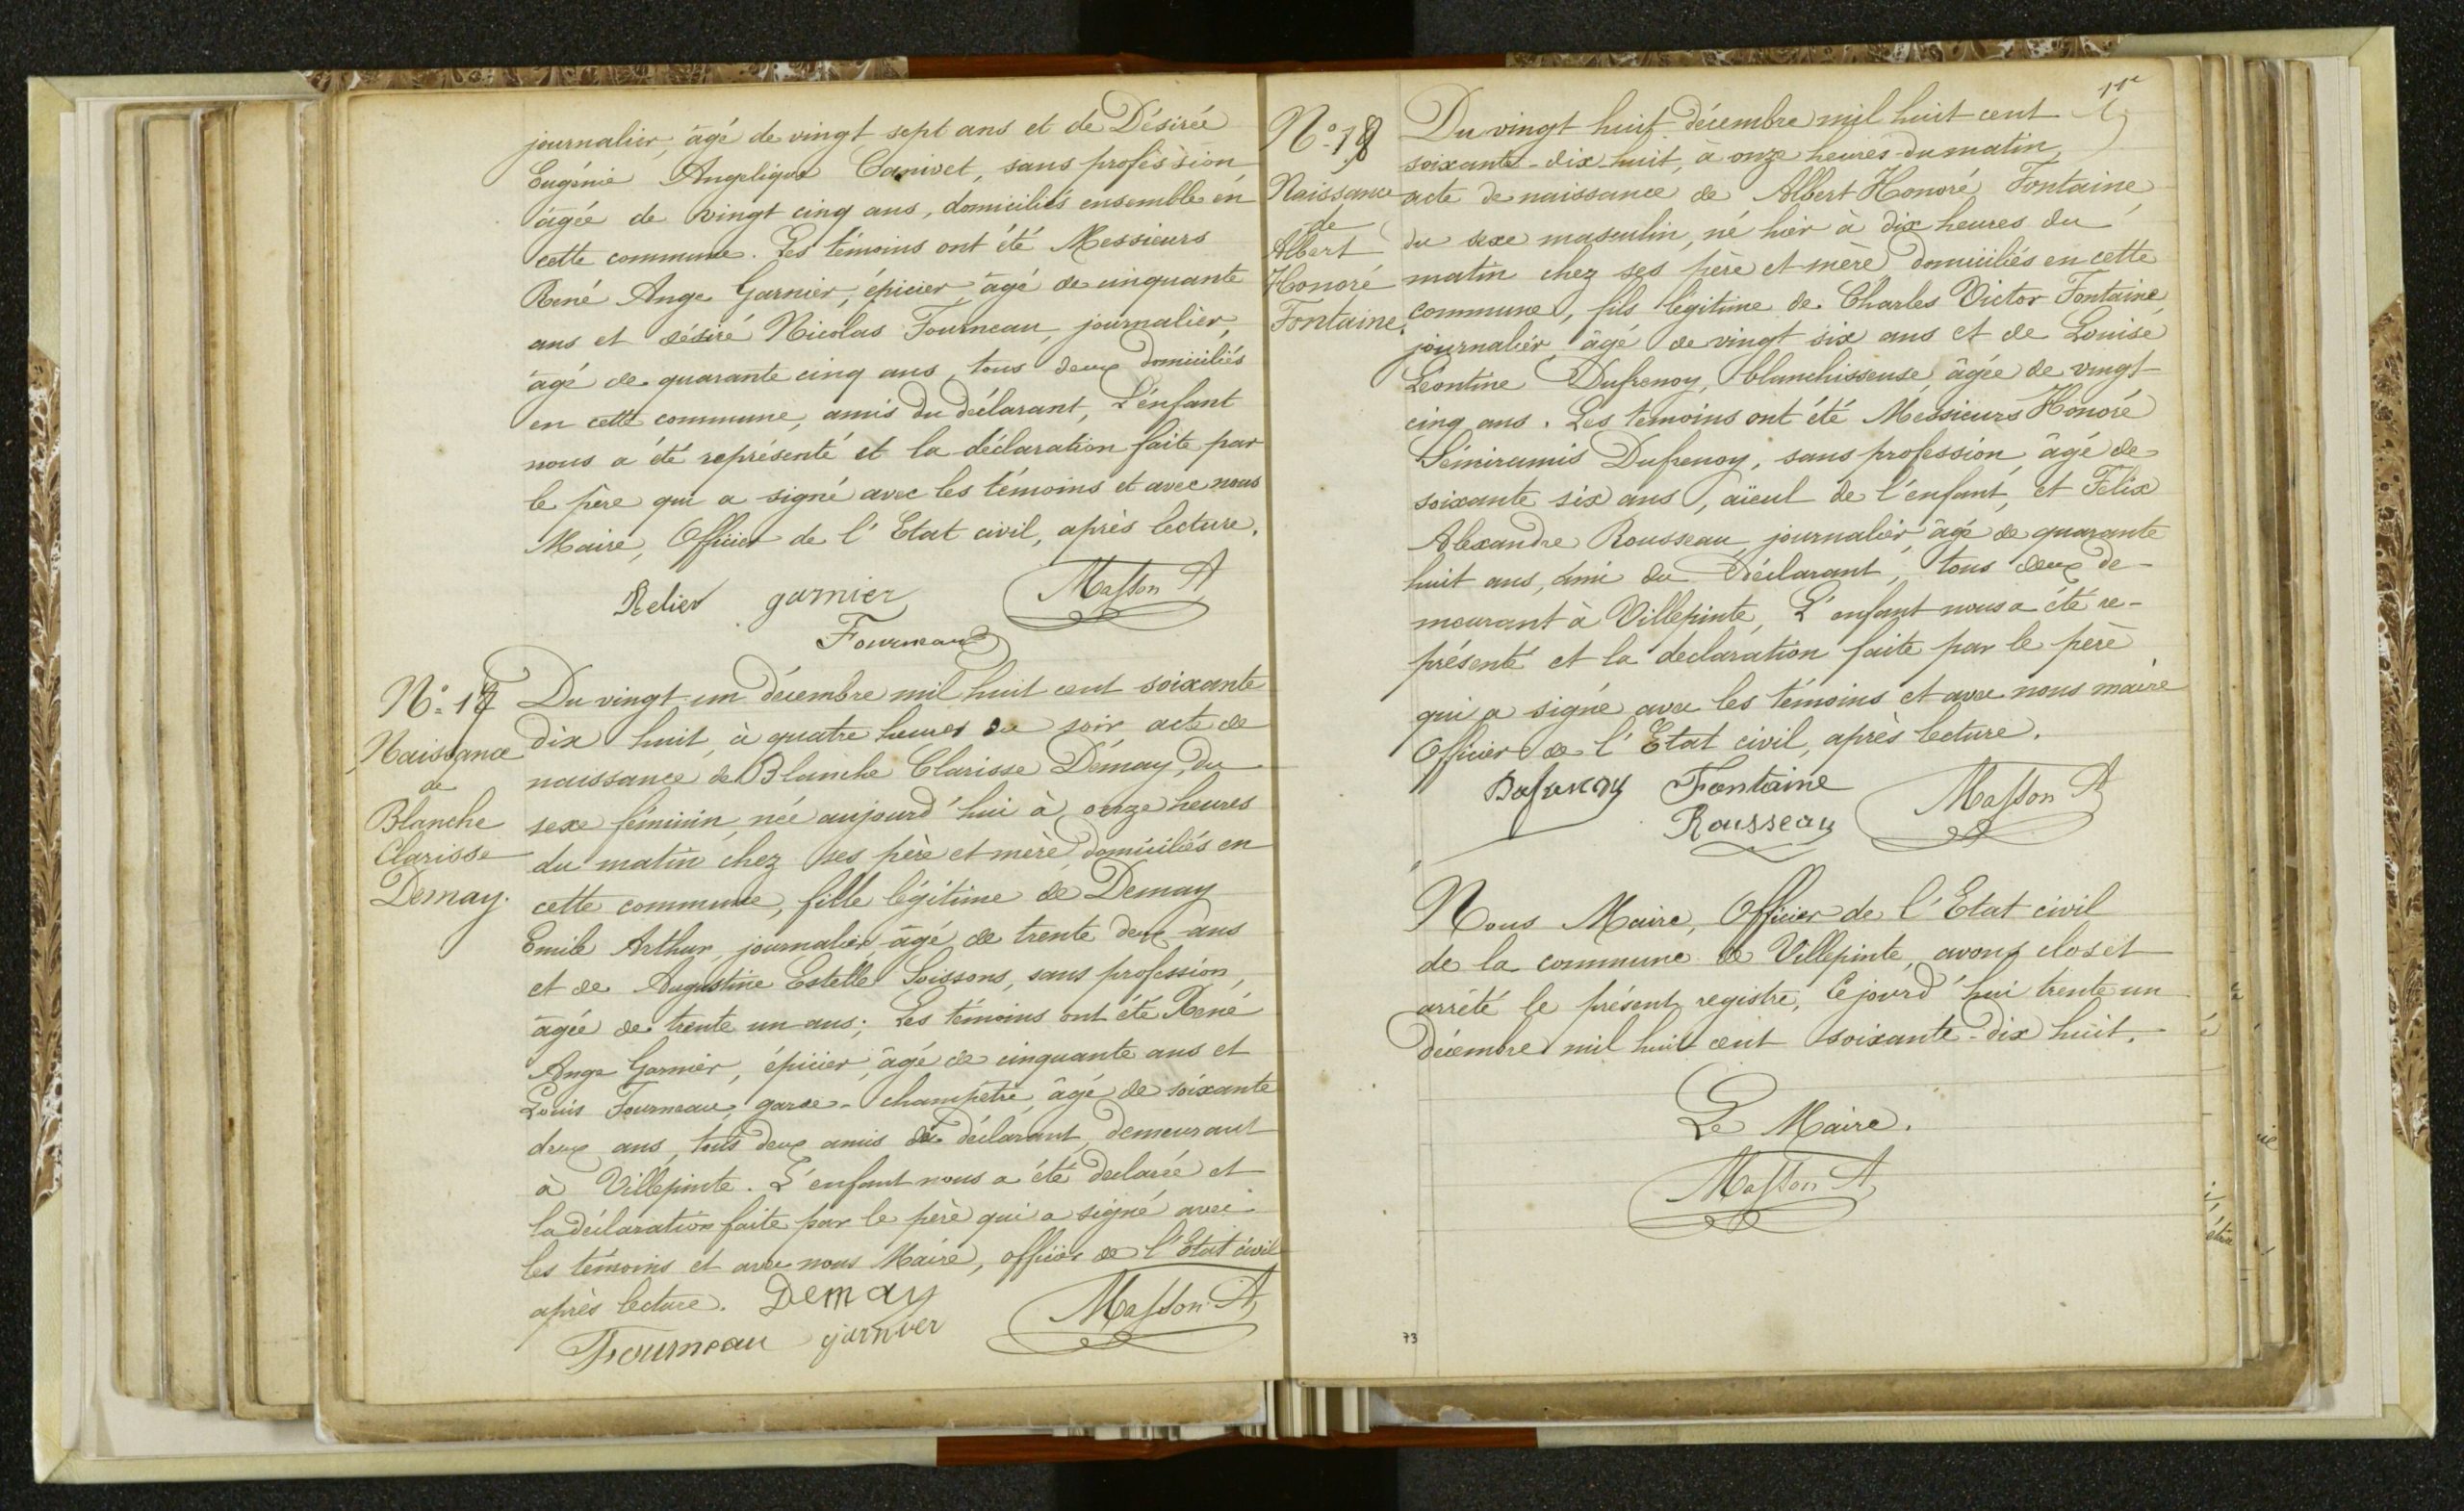 journalier, âgé de vingt sept ans et de Désirée
Eugénie Angelique Canivet, sans profession
âgée de vingt cinq ans, domiciliés ensemble en
cette commune. Les témoins ont été Messieurs
René Ange Garnier, épicier, âgé de cinquante
ans et désiré Nicolas Fourneau, journalier,
âgé de quarante cinq ans, tous deux domiciliés
en cette commune, amis du déclarant, L'enfant
nous a été représenté et la déclaration faite par
le père qui a signé avec les témoins et avec nous
Maire, Officier de l'Etat civil, après lecture.
Relier garnier Masson A
Fourneau
N° 17
Naissance
de
Blanche
Clarisse
Demay.
Du vingt-un décembre mil huit cent soixante
dix huit, à quatre heures du soir acte de
naissance de Blanche Clarisse Démay, du
sexe féminin, née aujourd'hui à onze heures
du matin chez ses père et mère, domiciliés en
cette commune, fille légitime de Demay
Emile Arthur, journalier, âgé de trente deux ans
et de Augustine Estelle Soissons, sans profession,
âgée de trente un ans; Les témoins ont été René
Ange Garnier, épicier, âgé de cinquante ans et
Louis Fourneau, garde-champêtre, âgé de soixante
deux ans, tous deux amis du déclarant, demeurant
à Villepinte. L'enfant nous a été declarée et
la déclaration faite par le père qui a signé avec
les témoins et avec nous Maire, officier de l'Etat civil
après lecture. Demay Masson A
Fourneau garnier
N° 18
Naissance
de
Albert
Honoré
Fontaine.
Du vingt huit décembre mil huit cent
soixante-dix huit, à onze heures du matin,
acte de naissance de Albert Honoré Fontaine,
du sexe masculin, né hier à dix heures du
matin chez ses père et mère domiciliés en cette
commune, fils légitime de Charles Victor Fontaine,
journalier, âgé de vingt six ans et de Louise
Léontine Dufrenoy, blanchisseuse, âgée de vingt-
cinq ans. Les témoins ont été Messieurs Honoré
Sémiramis Dufrenoy, sans profession, âgé de
soixante six ans, aïeul de l'enfant, et Félix
Alexandre Rousseau, journalier, âgé de quarante
huit ans, ami du déclarant, tous deux de-
meurant à Villepinte, L'enfant nous a été re-
présenté et la declaration faite par le père
qui a signé avec les témoins et avec nous maire
Officier de l'Etat civil, après lecture.
Dufrenoy Fontaine Masson A
Rousseau
Nous Maire, Officier de l'Etat civil
de la commune de Villepinte, avons clos et
arrêté le présent registre, Cejourd'hui trente un
décembre mil huit cent soixante-dix huit.
Le Maire.
Masson A
73